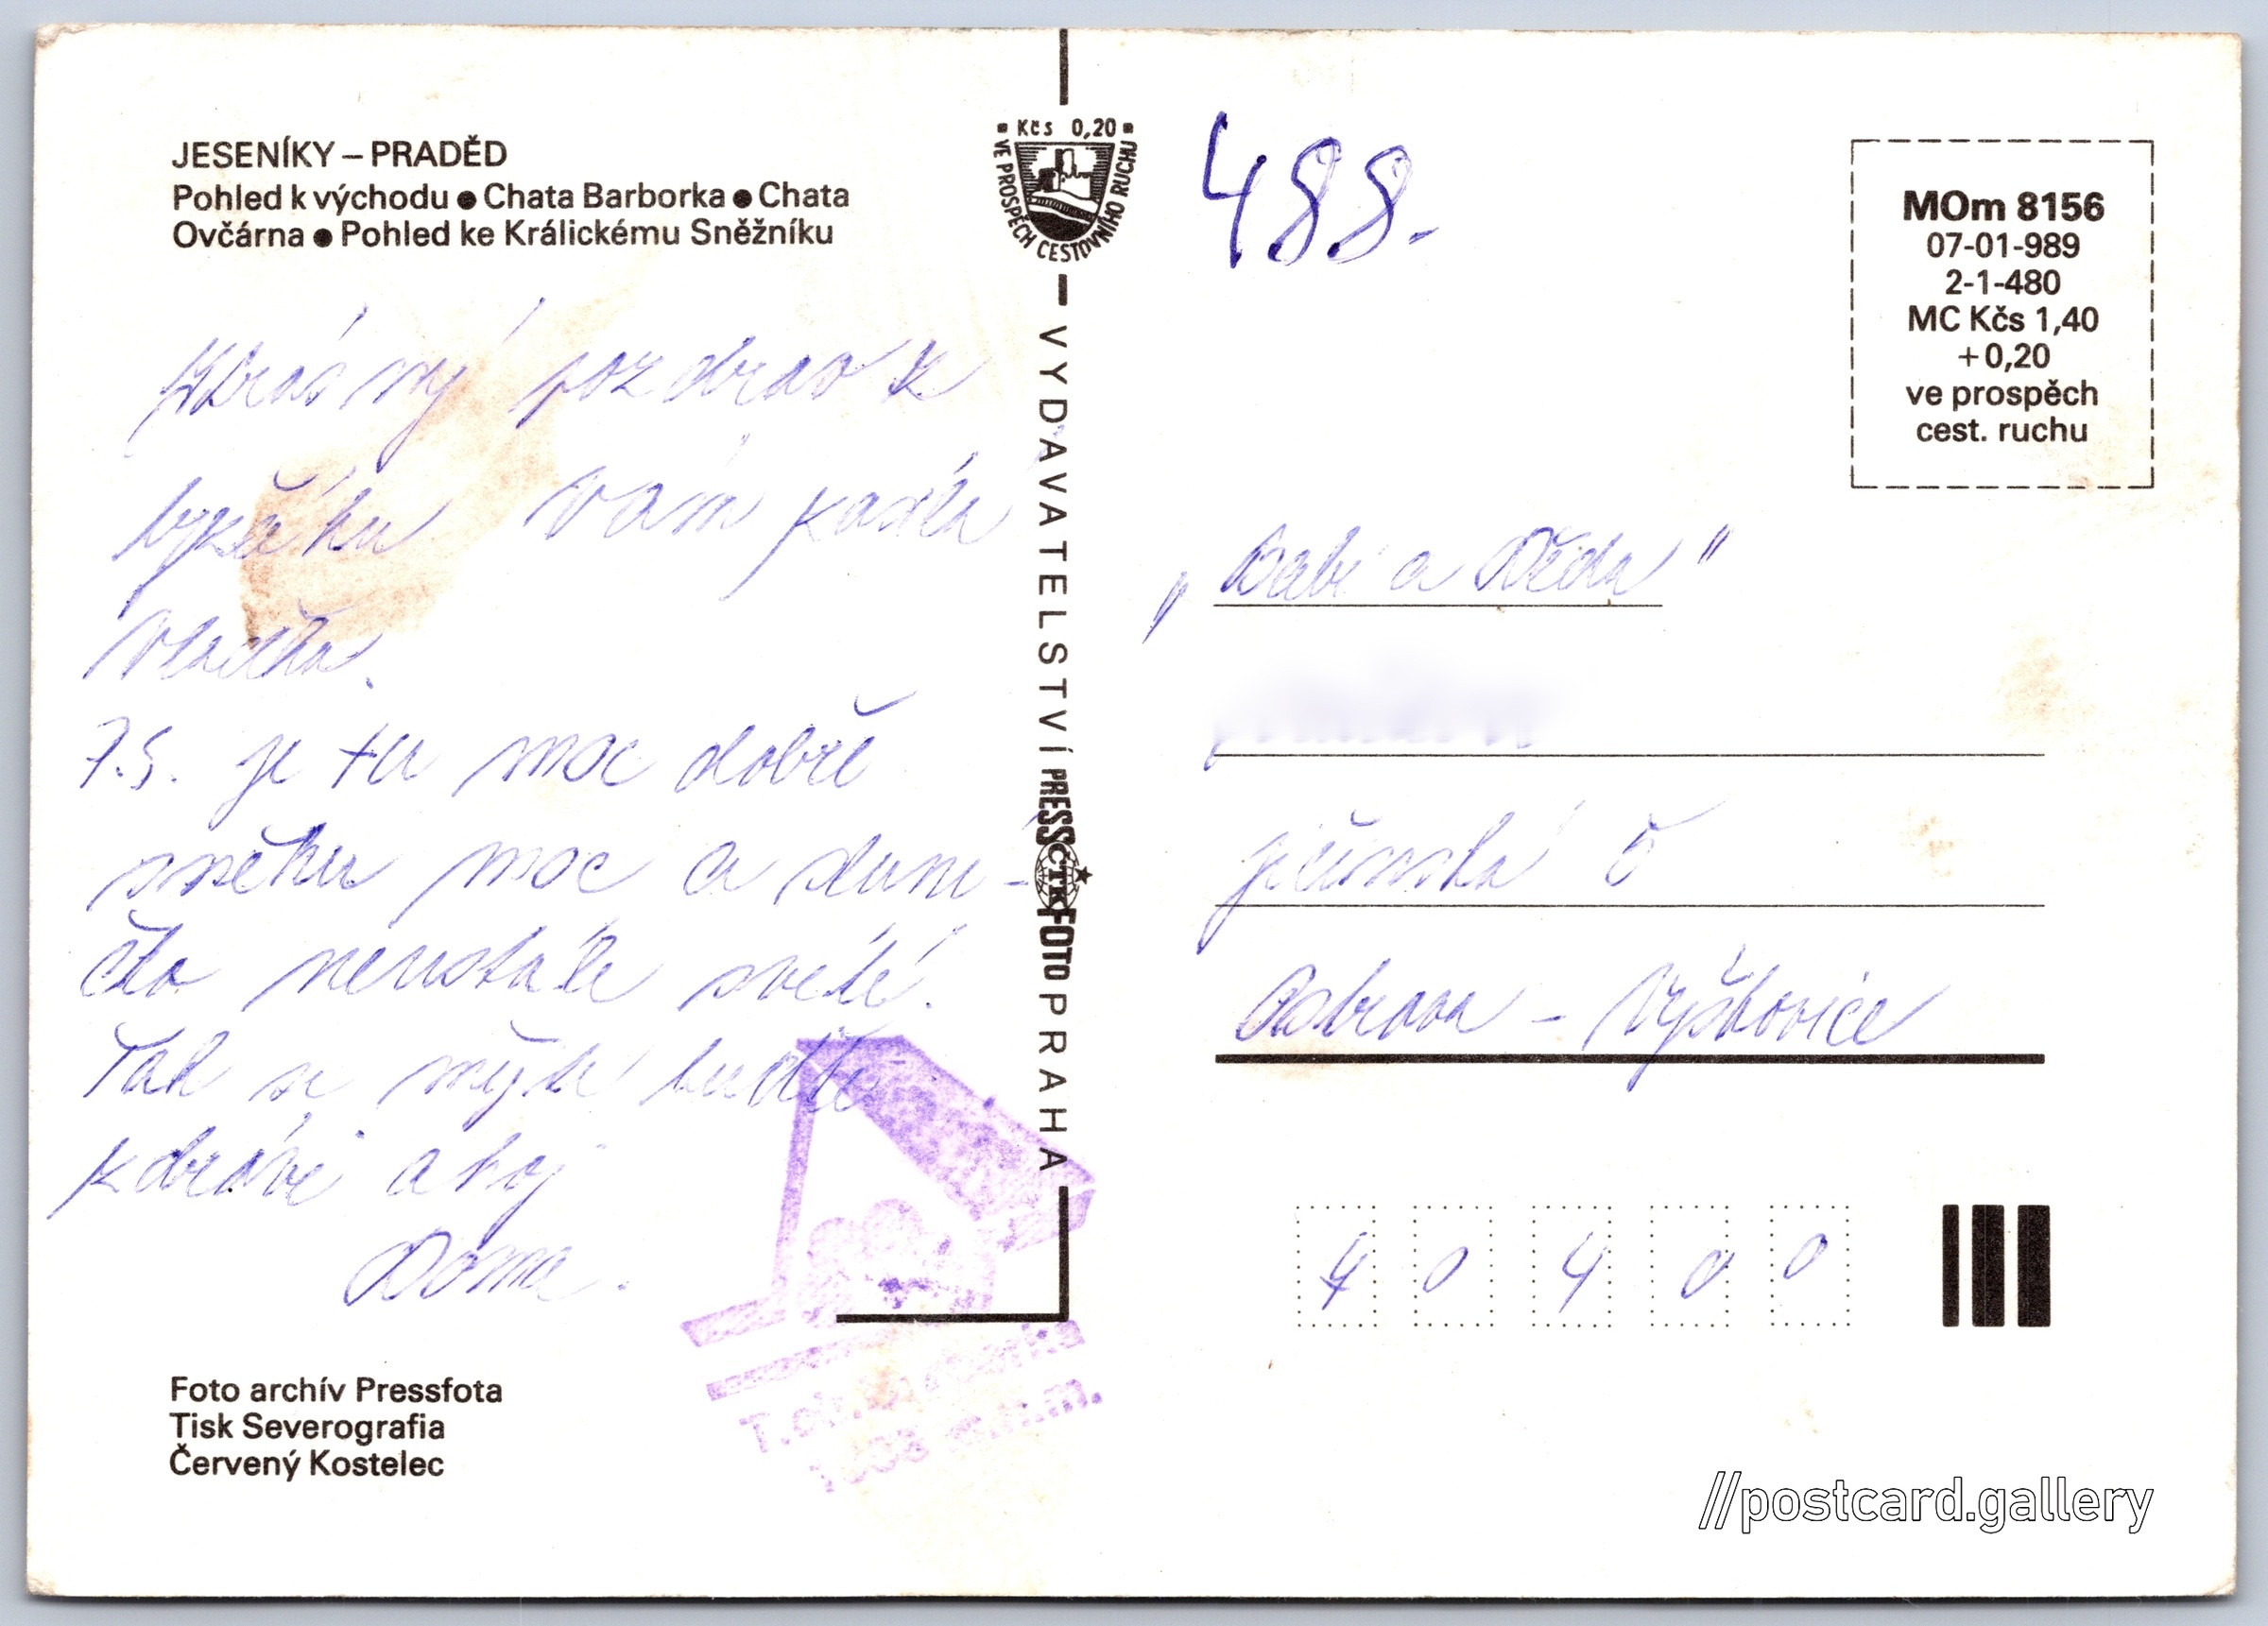 JESENÍKY – PRADĚD
Pohled k východu ● Chata Barborka ● Chata
Ovčárna ● Pohled ke Králickému Sněžníku
▪ Kčs 0,20 ▪
VE PROSPĚCH CESTOVNÍHO RUCHU
488.
MOm 8156
07-01-989
2-1-480
MC Kčs 1,40
+0,20
ve prospěch
cest. ruchu
pozdrav z
Vám
7.S. je tu moc dobře
sněhu moc a sluní-
čko neustále svítí.
Tak se mějte buďte
zdrávi ahoj
VYDAVATELSTVÍ PRESSČTKFOTO PRAHA
„Babi a Děda"
5
Ostrava – Výškovice
40400
m.n.m.
Foto archív Pressfota
Tisk Severografia
Červený Kostelec
//postcard.gallery